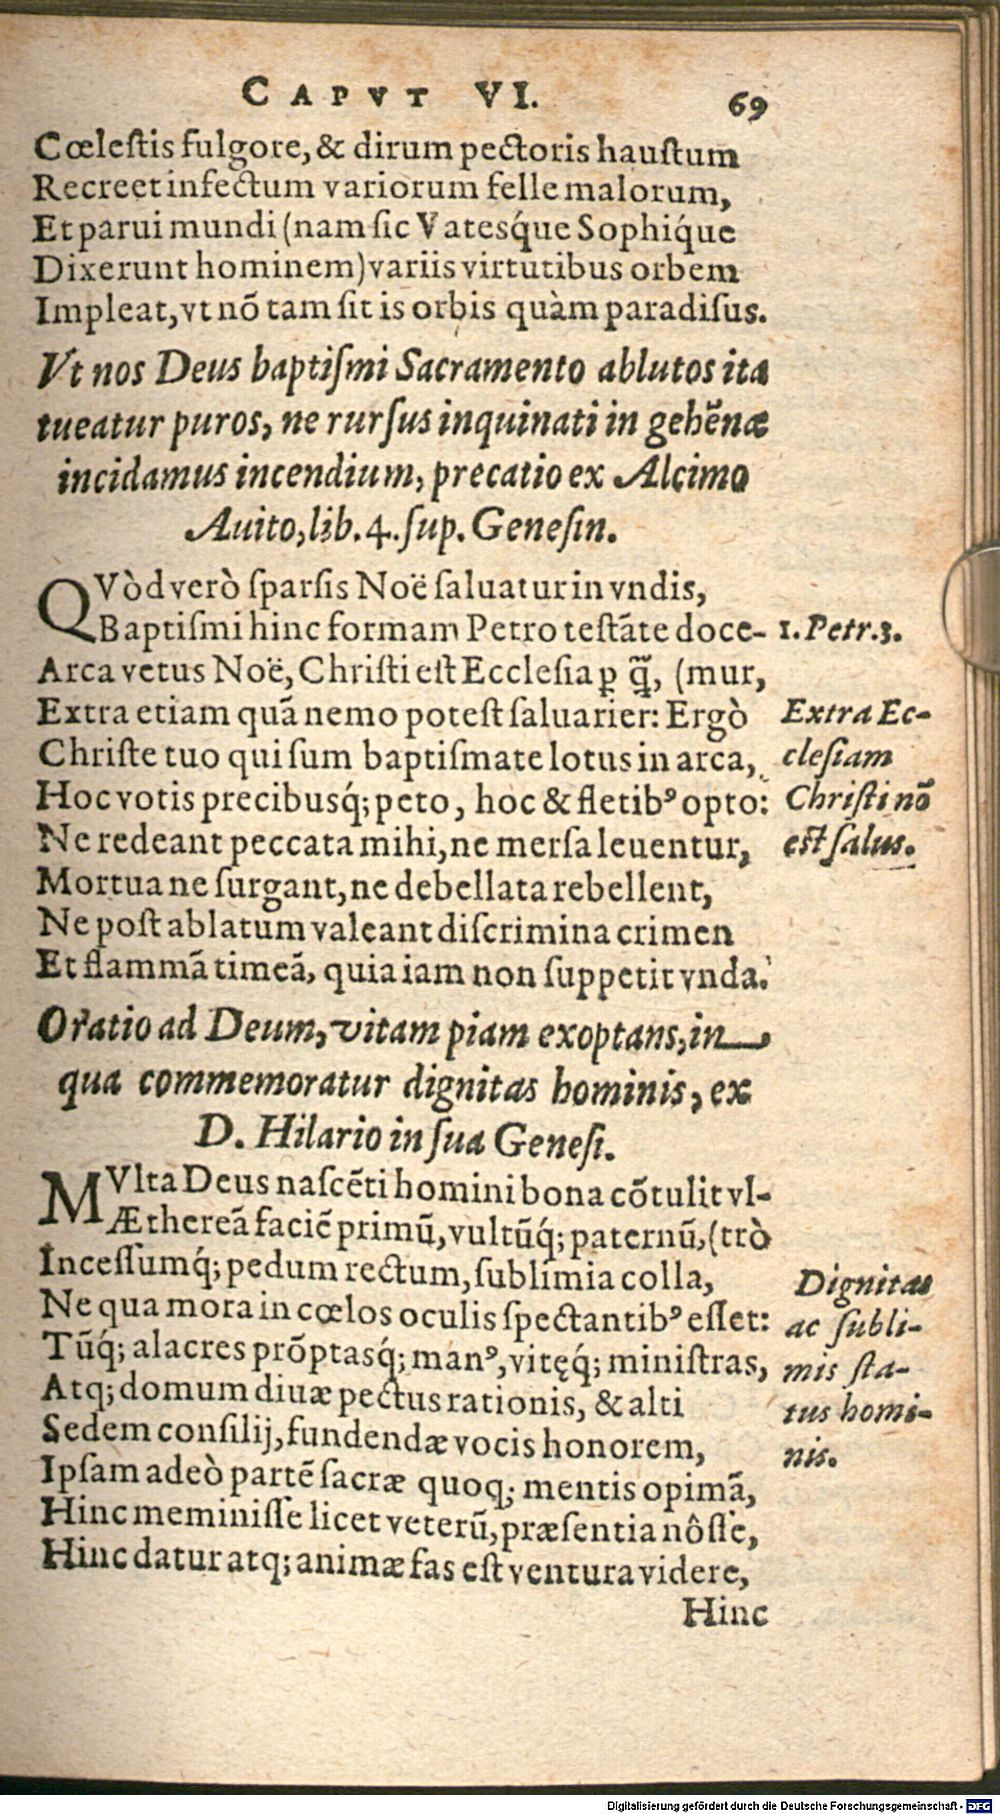 CAPVT VI. 69
Cœleſtis fulgore, & dirum pectoris hauſtum
Recreet infectum variorum felle malorum,
Et parui mundi (nam ſic Vatesq́ue Sophiq́ue
Dixerunt hominem) variis virtutibus orbem
Impleat, vt nō tam ſit is orbis quàm paradiſus.
Vt nos Deus baptiſmi Sacramento ablutos ita
tueatur puros, ne rurſus inquinati in gehēnæ
incidamus incendium, precatio ex Alcimo
Auito, lib. 4. ſup. Geneſin.
QVòd verò ſparſis Noë ſaluatur in vndis,
Baptiſmi hinc formam Petro teſtāte doce- 1. Petr. 3.
Arca vetus Noë, Chriſti eſt Eccleſia ꝑ q̃, (mur,
Extra etiam quā nemo poteſt ſaluarier: Ergò
Extra Ec-
Chriſte tuo qui ſum baptiſmate lotus in arca,
cleſiam
Hoc votis precibusq́; peto, hoc & fletibꝰ opto:
Chriſti nō
Ne redeant peccata mihi, ne merſa leuentur,
eſt ſalus.
Mortua ne ſurgant, ne debellata rebellent,
Ne poſt ablatum valeant diſcrimina crimen
Et flammā timeā, quia iam non ſuppetit vnda.
Oratio ad Deum, vitam piam exoptans, in
qua commemoratur dignitas hominis, ex
D. Hilario in ſua Geneſi.
MVlta Deus naſcēti homini bona cōtulit vl-
Æthereā faciē primū, vultūq́; paternū, (trò
Inceſſumq́; pedum rectum, ſublimia colla,
Dignitas
Ne qua mora in cœlos oculis ſpectantibꝰ eſſet:
ac ſubli-
Tūq́; alacres prōptasq́; manꝰ, vitęq́; miniſtras,
mis ſta-
Atq; domum diuæ pectus rationis, & alti
tus homi-
Sedem conſilij, fundendæ vocis honorem,
nis.
Ipſam adeò partē ſacræ quoq; mentis opimā,
Hinc meminiſſe licet veterū, præſentia nôſſe,
Hinc datur atq; animæ fas eſt ventura videre,
Hinc
Digitalisierung gefördert durch die Deutsche Forschungsgemeinschaft - DFG